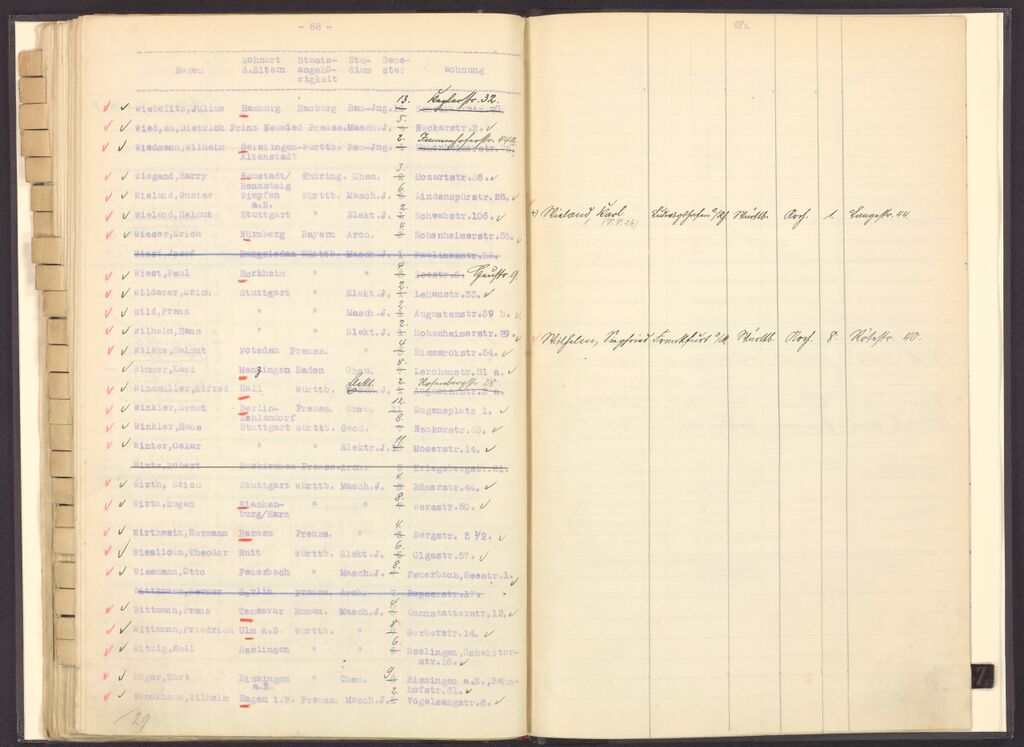 - 88 -
Namen Wohnort d.Eltern Staats-angehö-rigkeit Stu-dium Seme-ster Wohnung
Wiebelitz,Julius Hamburg Hamburg Bau-Jng. 13. 32.
Wied,zu,Dietrich Prinz Neuwied Preuss.Masch.J. 5. Neckarstr.2.
Wiedmann,Wilhelm Geislingen-Württb. Bau-Jng. 2.
Altenstadt
Wiegand,Harry Neustadt/ Thüring. Chem. 3. Mozartstr.36.
Rennsteig
Wieland,Gustav Wimpfen Württb. Masch.J. 6. Lindenspürstr.26.
a.N.
Wieland,Helmut Stuttgart " Elekt.J. 2. Schwabstr.106.
Wieser,Erich Nürnberg Bayern Arch. 4. Hohenheimerstr.55.
Wiest,Josef Burgrieden Württb. Masch.J. 1 Paulinenstr.53.
Wiest,Paul Horkheim " " 4. Seestr. 9
Wilderer,Erich Stuttgart " Elekt.J. 2. Lehenstr.33.
Wild,Franz " " Masch.J. 2. Augustenstr.39 b.
Wilhelm,Hans " " Elekt.J. 2. Hohenheimerstr.29.
Wilske,Helmut Potsdam Preuss. " 4. Bismarckstr.54.
Wimmer,Karl Menzingen Baden Chem. 8. Lerchenstr.81 a.
Windmüller,Alfred Hall Württb. Elekt. 2. Rosenbergstr. 28
Winkler,Ernst Berlin- Preuss. Chem. 12. Eugensplatz 1.
Zehlendorf
Winkler,Hans Stuttgart Württb. Geod. 8. Neckarstr.33.
Winter,Oskar " " Elektr.J. 11. Moserstr.14.
Wintz,Robert Euskirchen Preuss.Arch. Kriegsbergstr.21.
Wirth,Erich Stuttgart Württb. Masch.J. 4. Römerstr.44.
Wirth,Eugen Blanken- " " 8. Werastr.50.
burg/Harz
Wirthwein,Hermann Barmen Preuss. " 4. Bergstr. 5 1/2.
Wisslicen,Theodor Ruit Württb. Elekt.J. 6. Olgastr.57.
Wissmann,Otto Feuerbach " Masch.J. 8. Feuerbach,Seestr.1.
Wittkower,Werner Berlin Preuss. Arch. Bopserstr.17.
Wittmann,Franz Temesvar Rumän. Masch.J. 4. Cannstatterstr.12.
Wittmann,Friedrich Ulm a.D. Württb. " 8. Gerberstr.14.
Witzig,Emil Esslingen " " 6. Esslingen,Schelztor-
str.16.
Wöger,Kurt Bissingen " Chem. 9. Bissingen a.N.,Bahn-
a.N. hofstr.51.
Wönckhaus,Wilhelm Hagen i.W. Preuss. Masch.J. 2. Vogelsangstr.6.
129
88a
Wieland, Karl Ludwigshafen a/Rh. Württb. Arch. 1. Langestr. 44.
Wilhelm, Siegfried Frankfurt a/M. Württb. Arch. 8. Rotestr. 40.